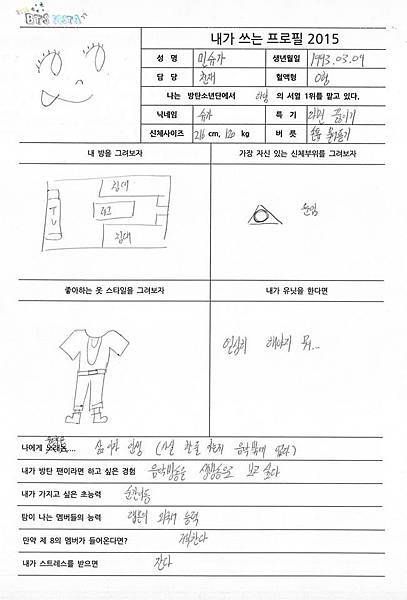 BTS FESTA
내가 쓰는 프로필 2015
성 명 민슈가 생년월일 1993.03.09
담 당 천재 혈액형 O형
나는 방탄소년단에서 의 서열 1위를 맡고 있다.
닉네임 슈가 특 기 라면 끓이기
신체사이즈 216 cm, 120 kg 버 릇 물어뜯기
내 방을 그려보자 가장 자신 있는 신체부위를 그려보자
침대
TV
침대
눈임
좋아하는 옷 스타일을 그려보자 내가 유닛을 한다면
해야지 뭐...
나에게 .... 인생 (사실 할줄 아는게 음악밖에 없다)
내가 방탄 팬이라면 하고 싶은 경험 음악방송을 생방송으로 보고 싶다
내가 가지고 싶은 초능력 순간이동
탐이 나는 멤버들의 능력 랩몬의 외국어 능력
만약 제 8의 멤버가 들어온다면?
내가 스트레스를 받으면 잔다